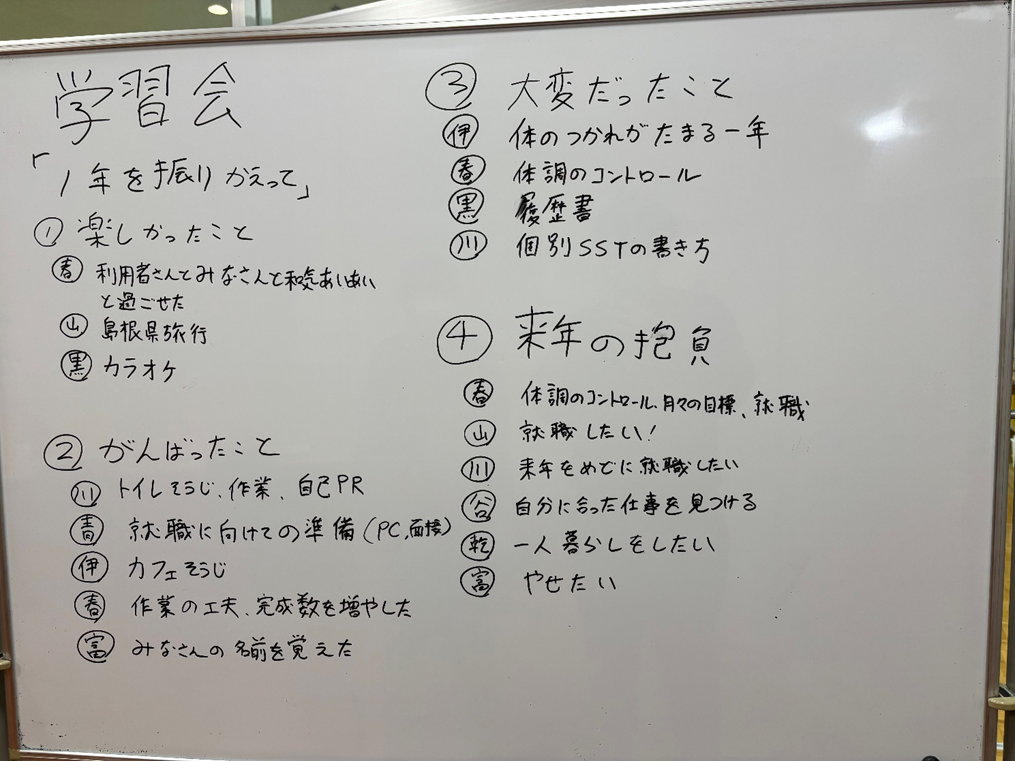 学習会
「1年を振りかえって」
① 楽しかったこと
春 利用者さんとみなさんと和気あいあい
と過ごせた
山 島根県旅行
黒 カラオケ
② がんばったこと
川 トイレそうじ、作業、自己PR
青 就職に向けての準備(PC,面接)
伊 カフェそうじ
春 作業の工夫、完成数を増やした
富 みなさんの名前を覚えた
③ 大変だったこと
伊 体のつかれがたまる一年
春 体調のコントロール
黒 履歴書
川 個別SSTの書き方
④ 来年の抱負
春 体調のコントロール、月々の目標、就職
山 就職したい!
川 来年をめどに就職したい
谷 自分に合った仕事を見つける
乾 一人暮らしをしたい
富 やせたい